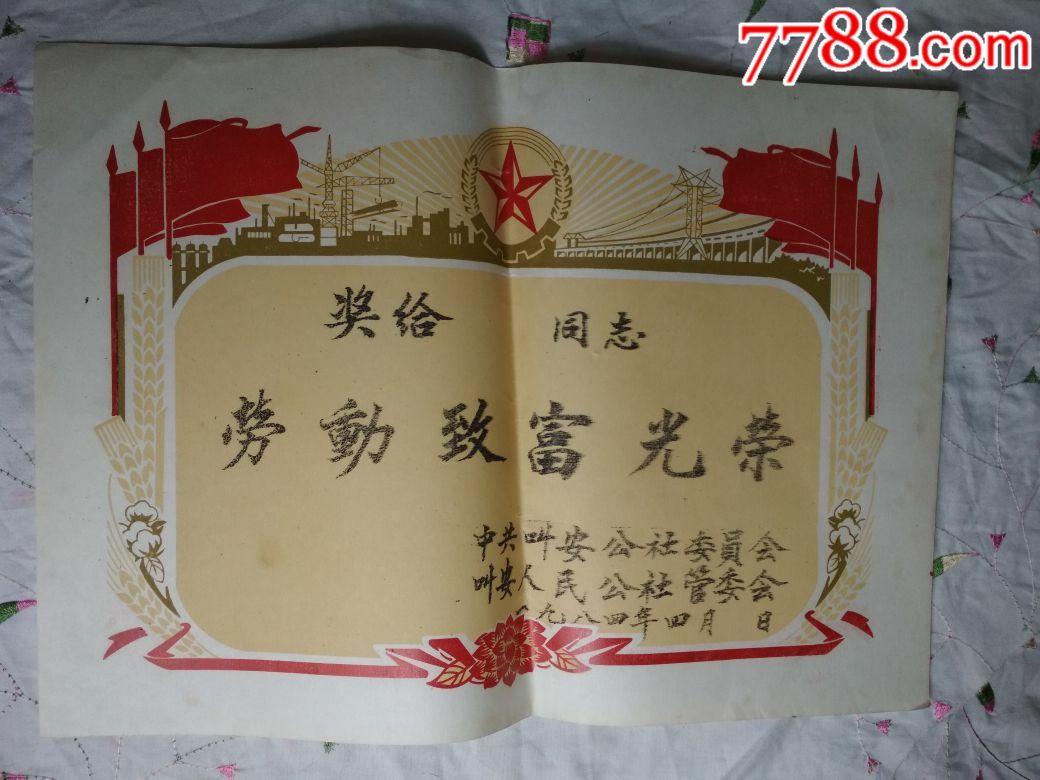 7788.com
奖给 同志
劳動致富光荣
中共叫安公社委員会
叫安人民公社管委会
一九八四年四月 日